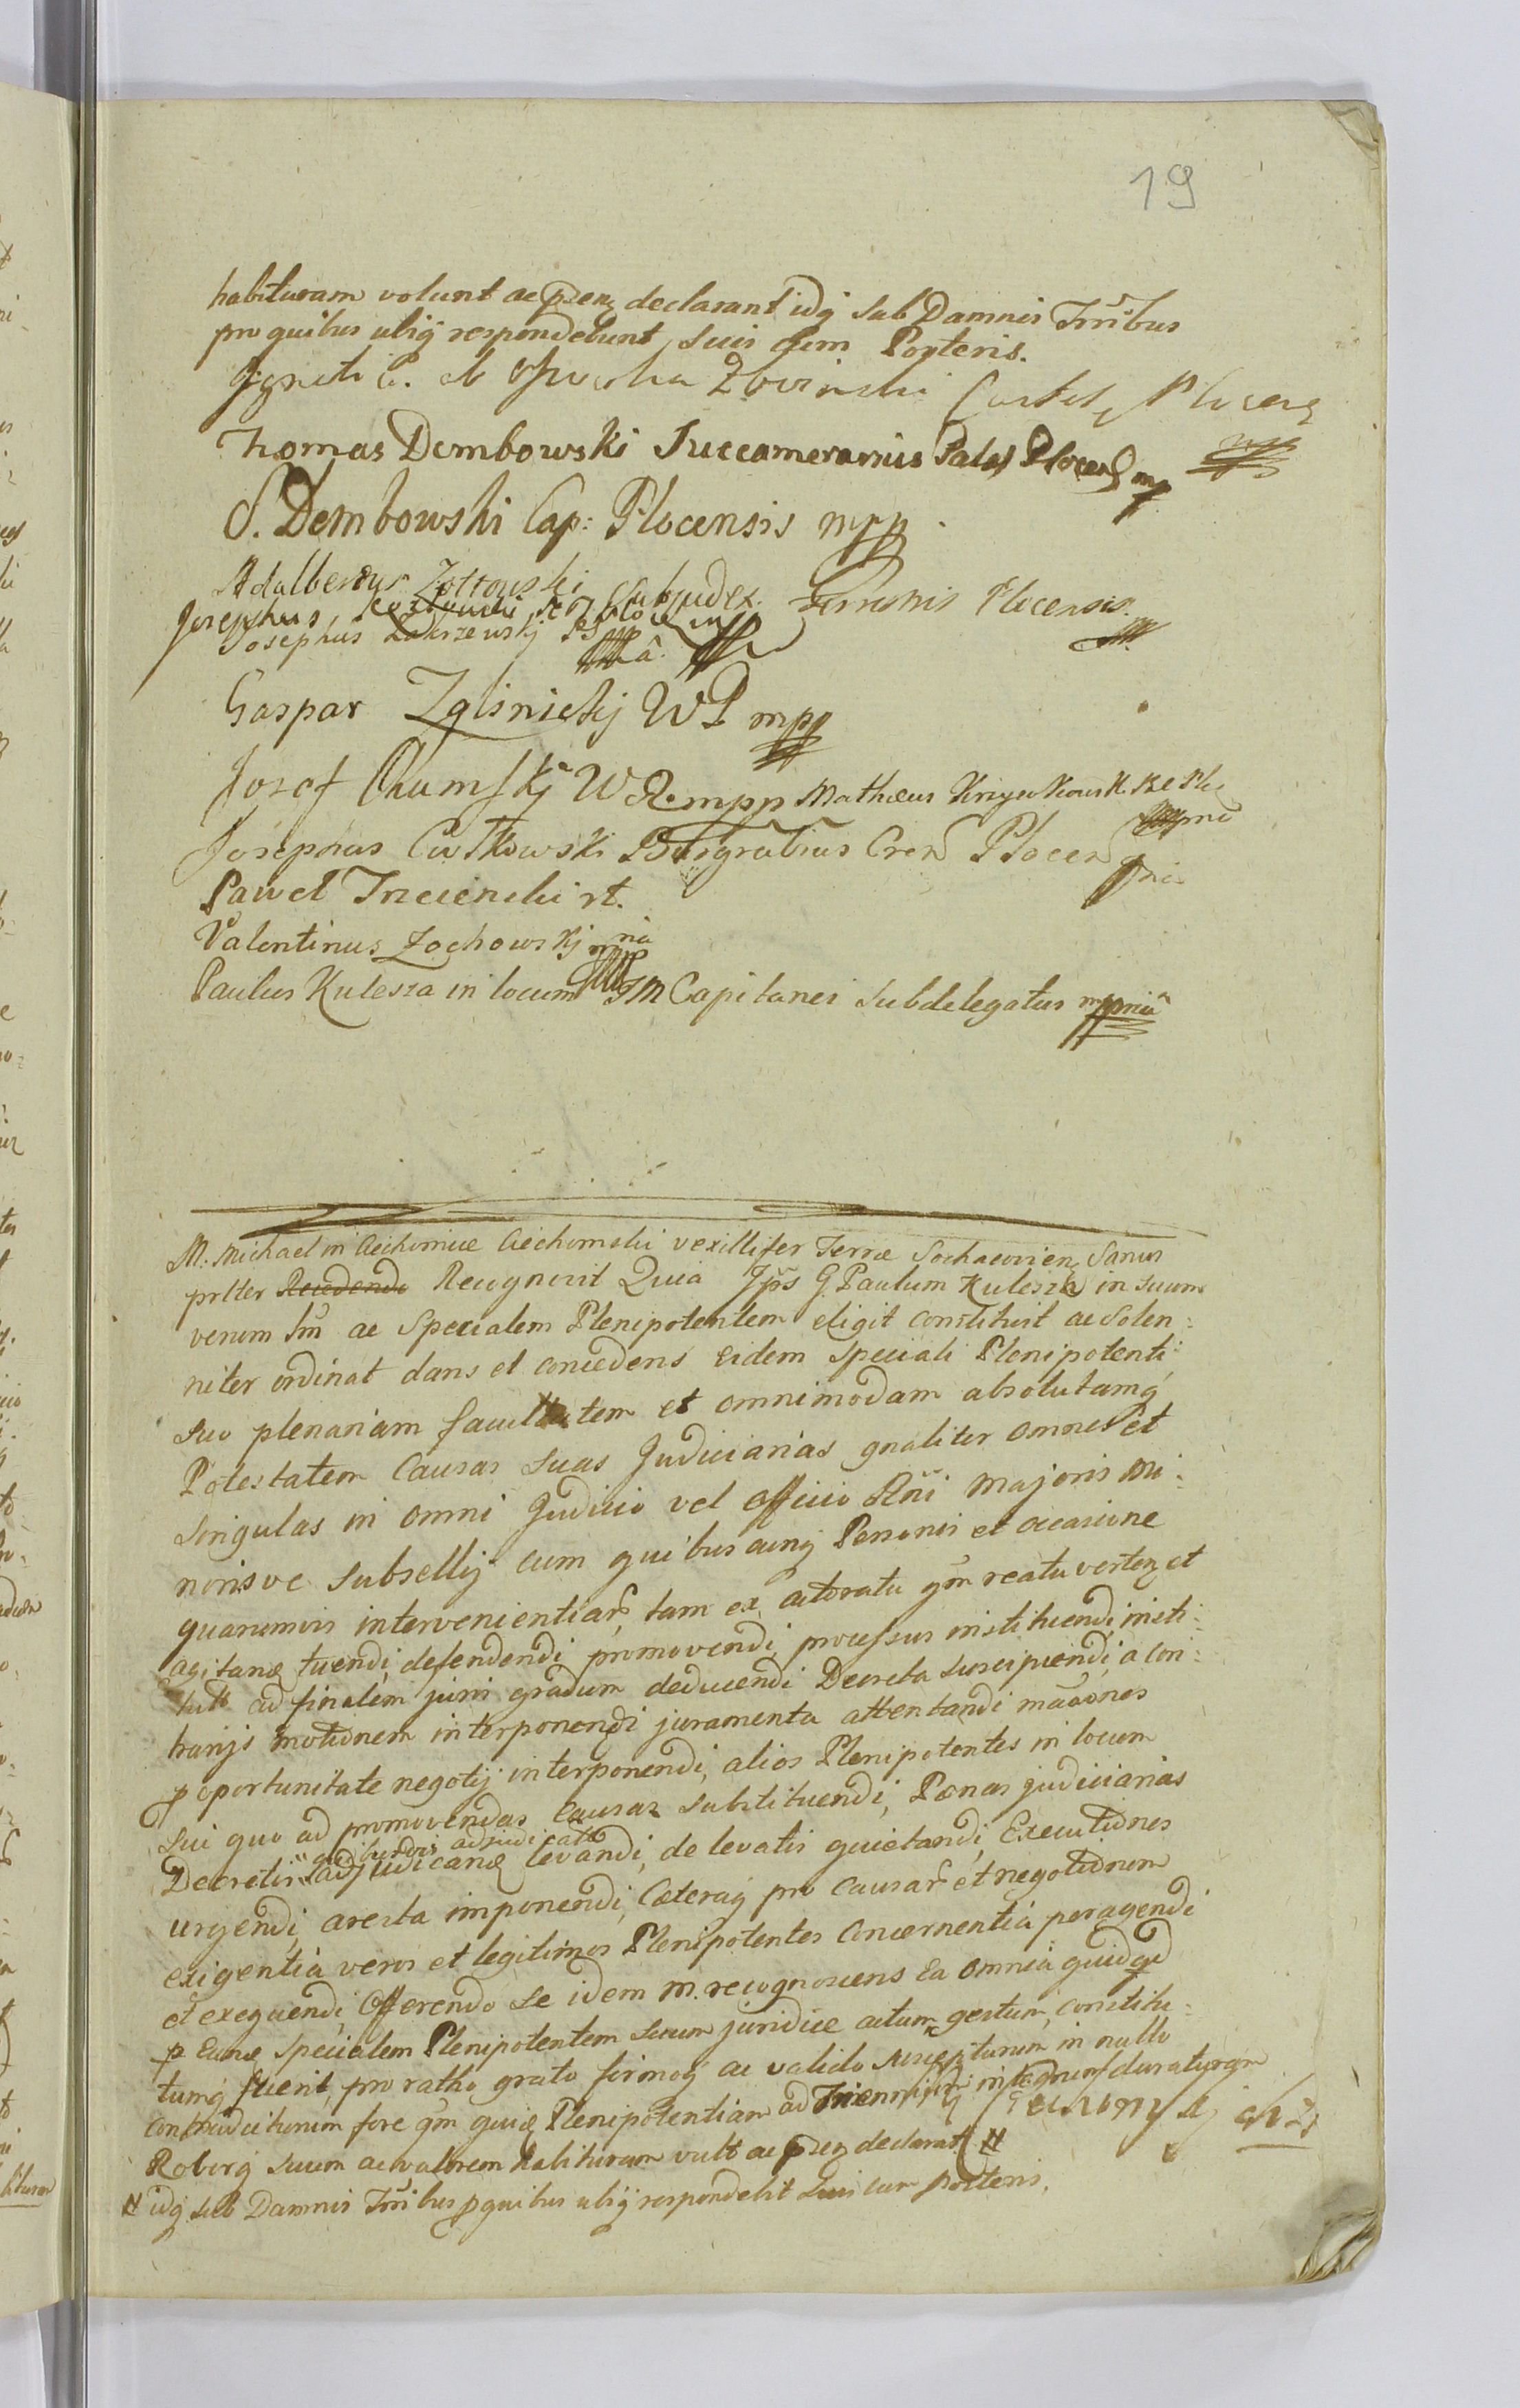 19
habituram volunt ac pñz declarant idq sub Damnis Trñibus
pro quibus ubiq respondebunt Suis cum Posteris.
Zboinski Plocenz
Thomas Dembowski Succamerarius Palat Plocenz mp
S. Dembowski Cap: Plocensis mpp
Adalbertus Subjudex Terrestris Plocensis.
Josephus
Josephus Zakrzewskj
Gaspar Zglinickj WP mpp
Jozef Chumskj WR mpp Matheus
Josephus Cutkowski Burgrabius Cren Plocen
Pawel
Valentinus Zochowskj
Paulus Kulesza in locum JM Capitanei Subdelegatus mppria
M. Michael in Ciechomice Ciechomski vexillifer Terræ Sochacovien Sanus
prtter Recedendo Recognovit Quia Jps G. Paulum Kulesza in suum
verum lrm ac Specialem Plenipotentem eligit constituit ac Solen:
niter ordinat dans et concedens eidem speciali Plenipotenti
suo plenariam facultatem et omnimodam absolutamq
Potestatem Causas suas Judiciarias gnaliter omnes et
singulas in omni Judicio vel officio Rñi Majoris Mi:
norisve Subsellij cum quibuscunq Personis et occasione
quarumvis intervenientiar, tam ex actoratu qm reatu verten et
agitan tuendi, defendendi promovendi, processus instituendi, insti:
tut ad finalem juris gradum deducendi Decreta suscipiendi, a con:
trarijs motionem interponendi juramenta attentandi
p oportunitate negotij interponendi, alios Plenipotentes in locum
sui quo ad promovendas Causas substituendi, Pœnas judiciarias
adjudicatt
Decretis adjudicanz levandi, de levatis quietandi, Executiones
urgendi, aresta imponendi, Cæteraq pro causar et negotionum
exigentia veros et legitimos Plenipotentes concernentia peragendi
et exequendi, Offerendo se idem M. recognoscens Ea omnia quidqd
p Eunz specialem Plenipotentem suum juridice actum, gestum, constitu:
tumq fuerit, pro ratho, grato firmoq ac valido suscepturum in nullo
contradicturum fore qm quiz Plenipotentiam ad Triennium integrum duraturqm
Roborq suum ac valorem habituram vult ac pñz declarat #
# idq sub Damnis Trñibus p quibus ubiq respondebit Suis cum posteris.